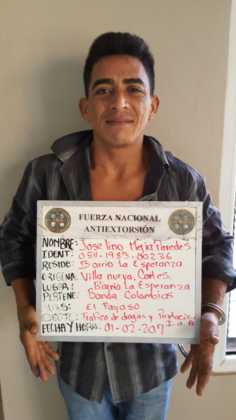 FUERZA NACIONAL
ANTIEXTORSIÓN
NOMBRE: Jose Lino Mejia Paredes
IDENT:
RESIDE: Barrio la Esperanza
ORIGEN: Villa nueva, Cortes,
LUGAR: Barrio La Esperanza
PERTENE: Banda Colombias
ALIAS: El Payaso
Trafico de drogas y
FECHA Y HORA: 01-02-2017